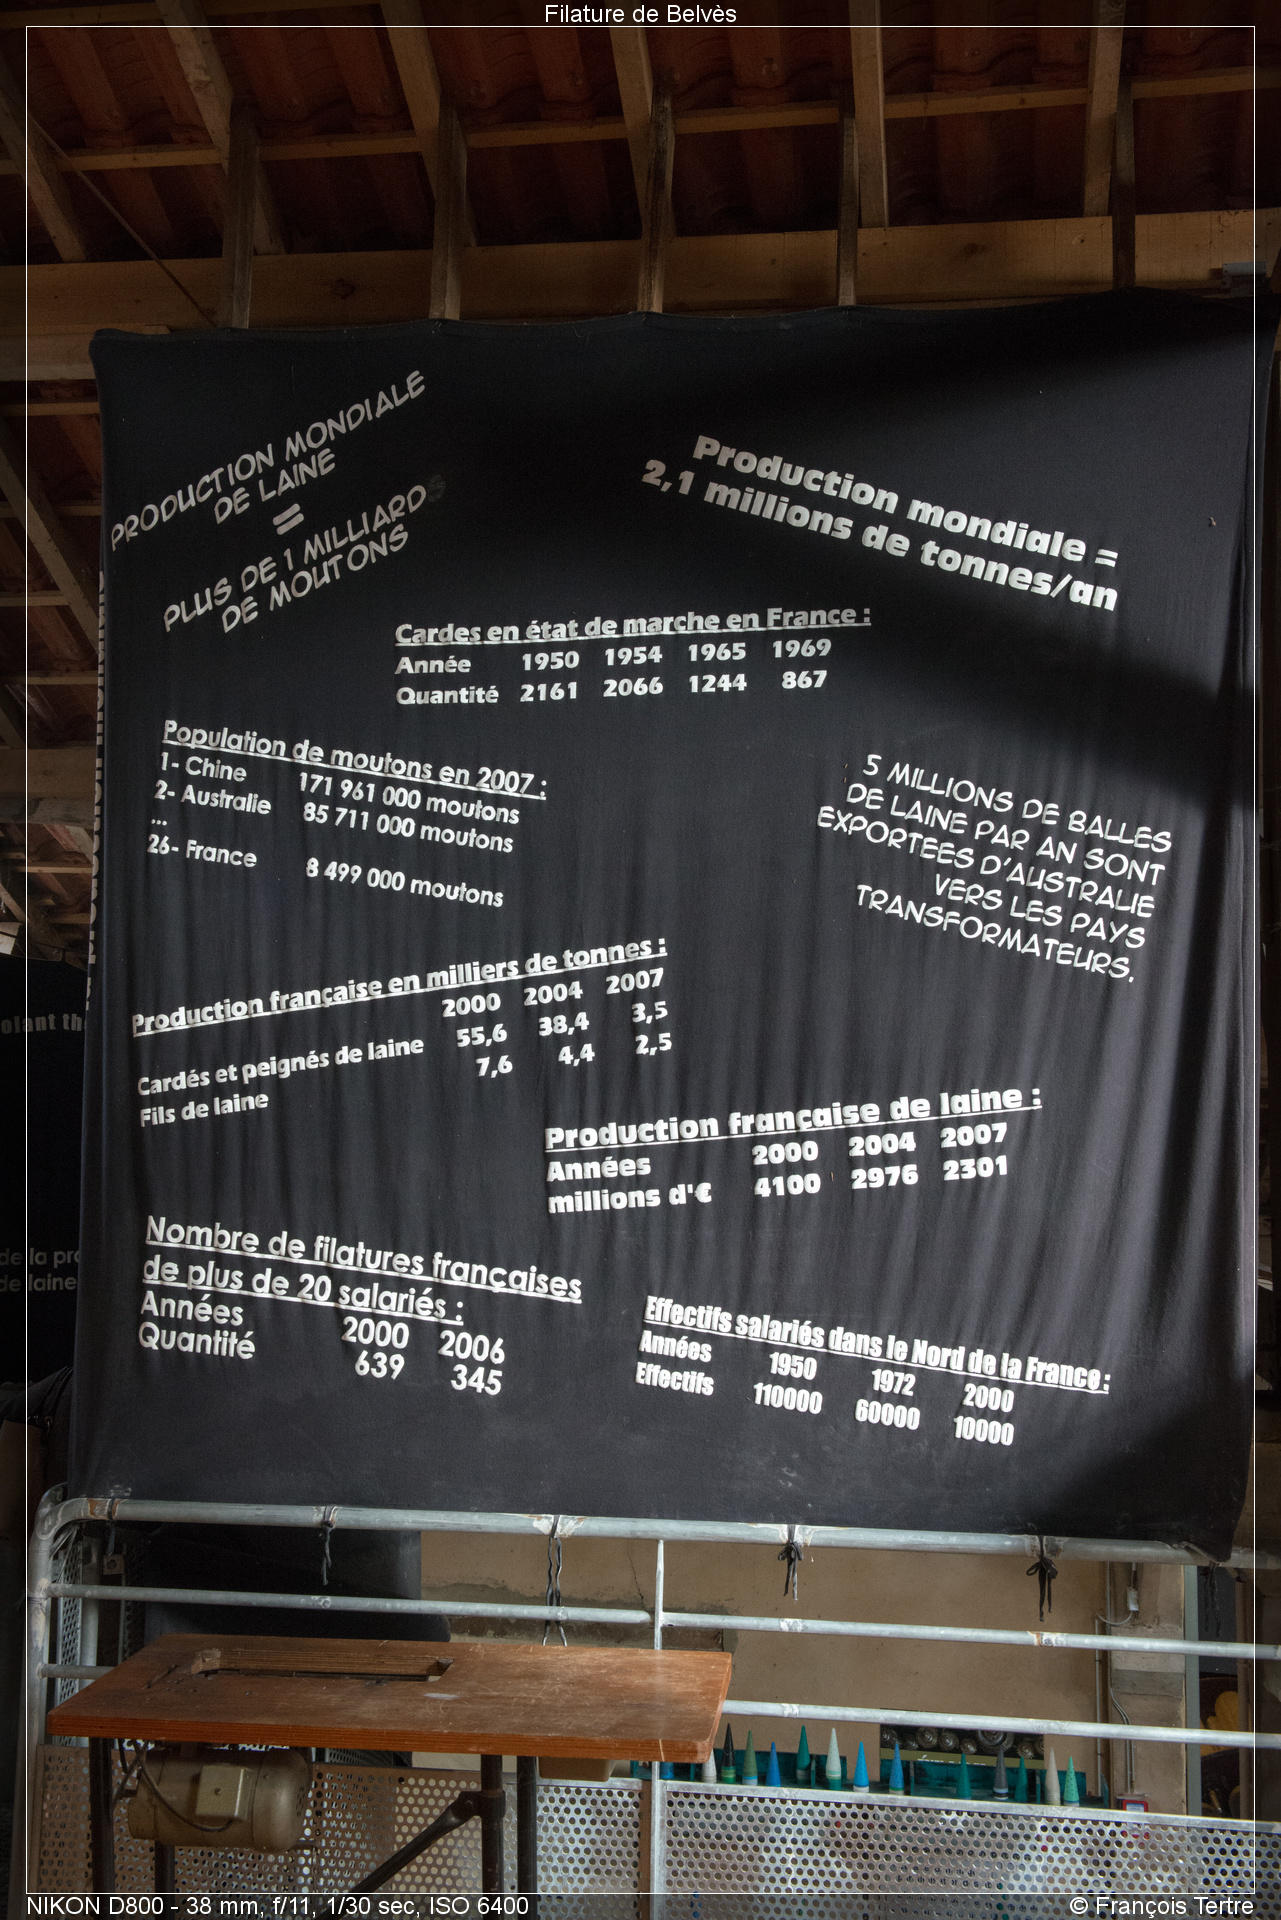 Filature de Belvès
PRODUCTION MONDIALE
DE LAINE
=
PLUS DE 1 MILLIARDS
DE MOUTONS
Production mondiale =
2,1 millions de tonnes/an
Cardes en état de marche en France :
Année 1950 1954 1965 1969
Quantité 2161 2066 1244 867
Population de moutons en 2007 :
1- Chine 171 961 000 moutons
2- Australie 85 711 000 moutons
...
26- France 8 499 000 moutons
5 MILLIONS DE BALLES
DE LAINE PAR AN SONT
EXPORTEES D'AUSTRALIE
VERS LES PAYS
TRANSFORMATEURS.
Production française en milliers de tonnes :
2000 2004 2007
Cardés et peignés de laine 55,6 38,4 3,5
Fils de laine 7,6 4,4 2,5
Production française de laine :
Années 2000 2004 2007
millions d'€ 4100 2976 2301
Nombre de filatures françaises
de plus de 20 salariés :
Années 2000 2006
Quantité 639 345
Effectifs salariés dans le Nord de la France :
Années 1950 1972 2000
Effectifs 110000 60000 10000
de la
de laine
NIKON D800 - 38 mm, f/11, 1/30 sec, ISO 6400
© François Tertre